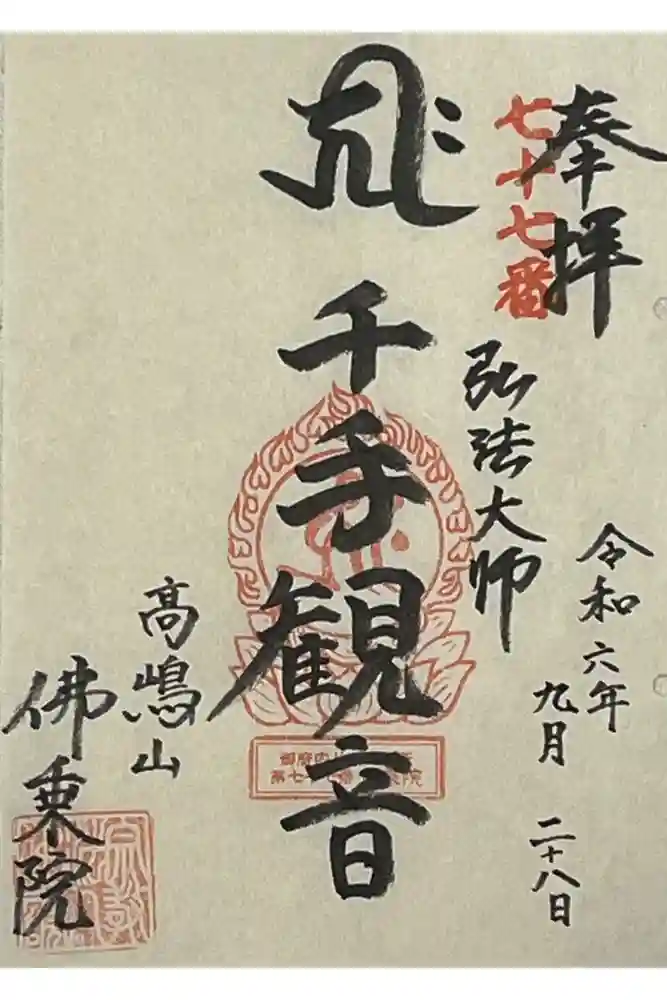 奉拝
七十七番
令和六年
九月
二十八日
弘法大師
千手観音
高嶋山
佛乗院